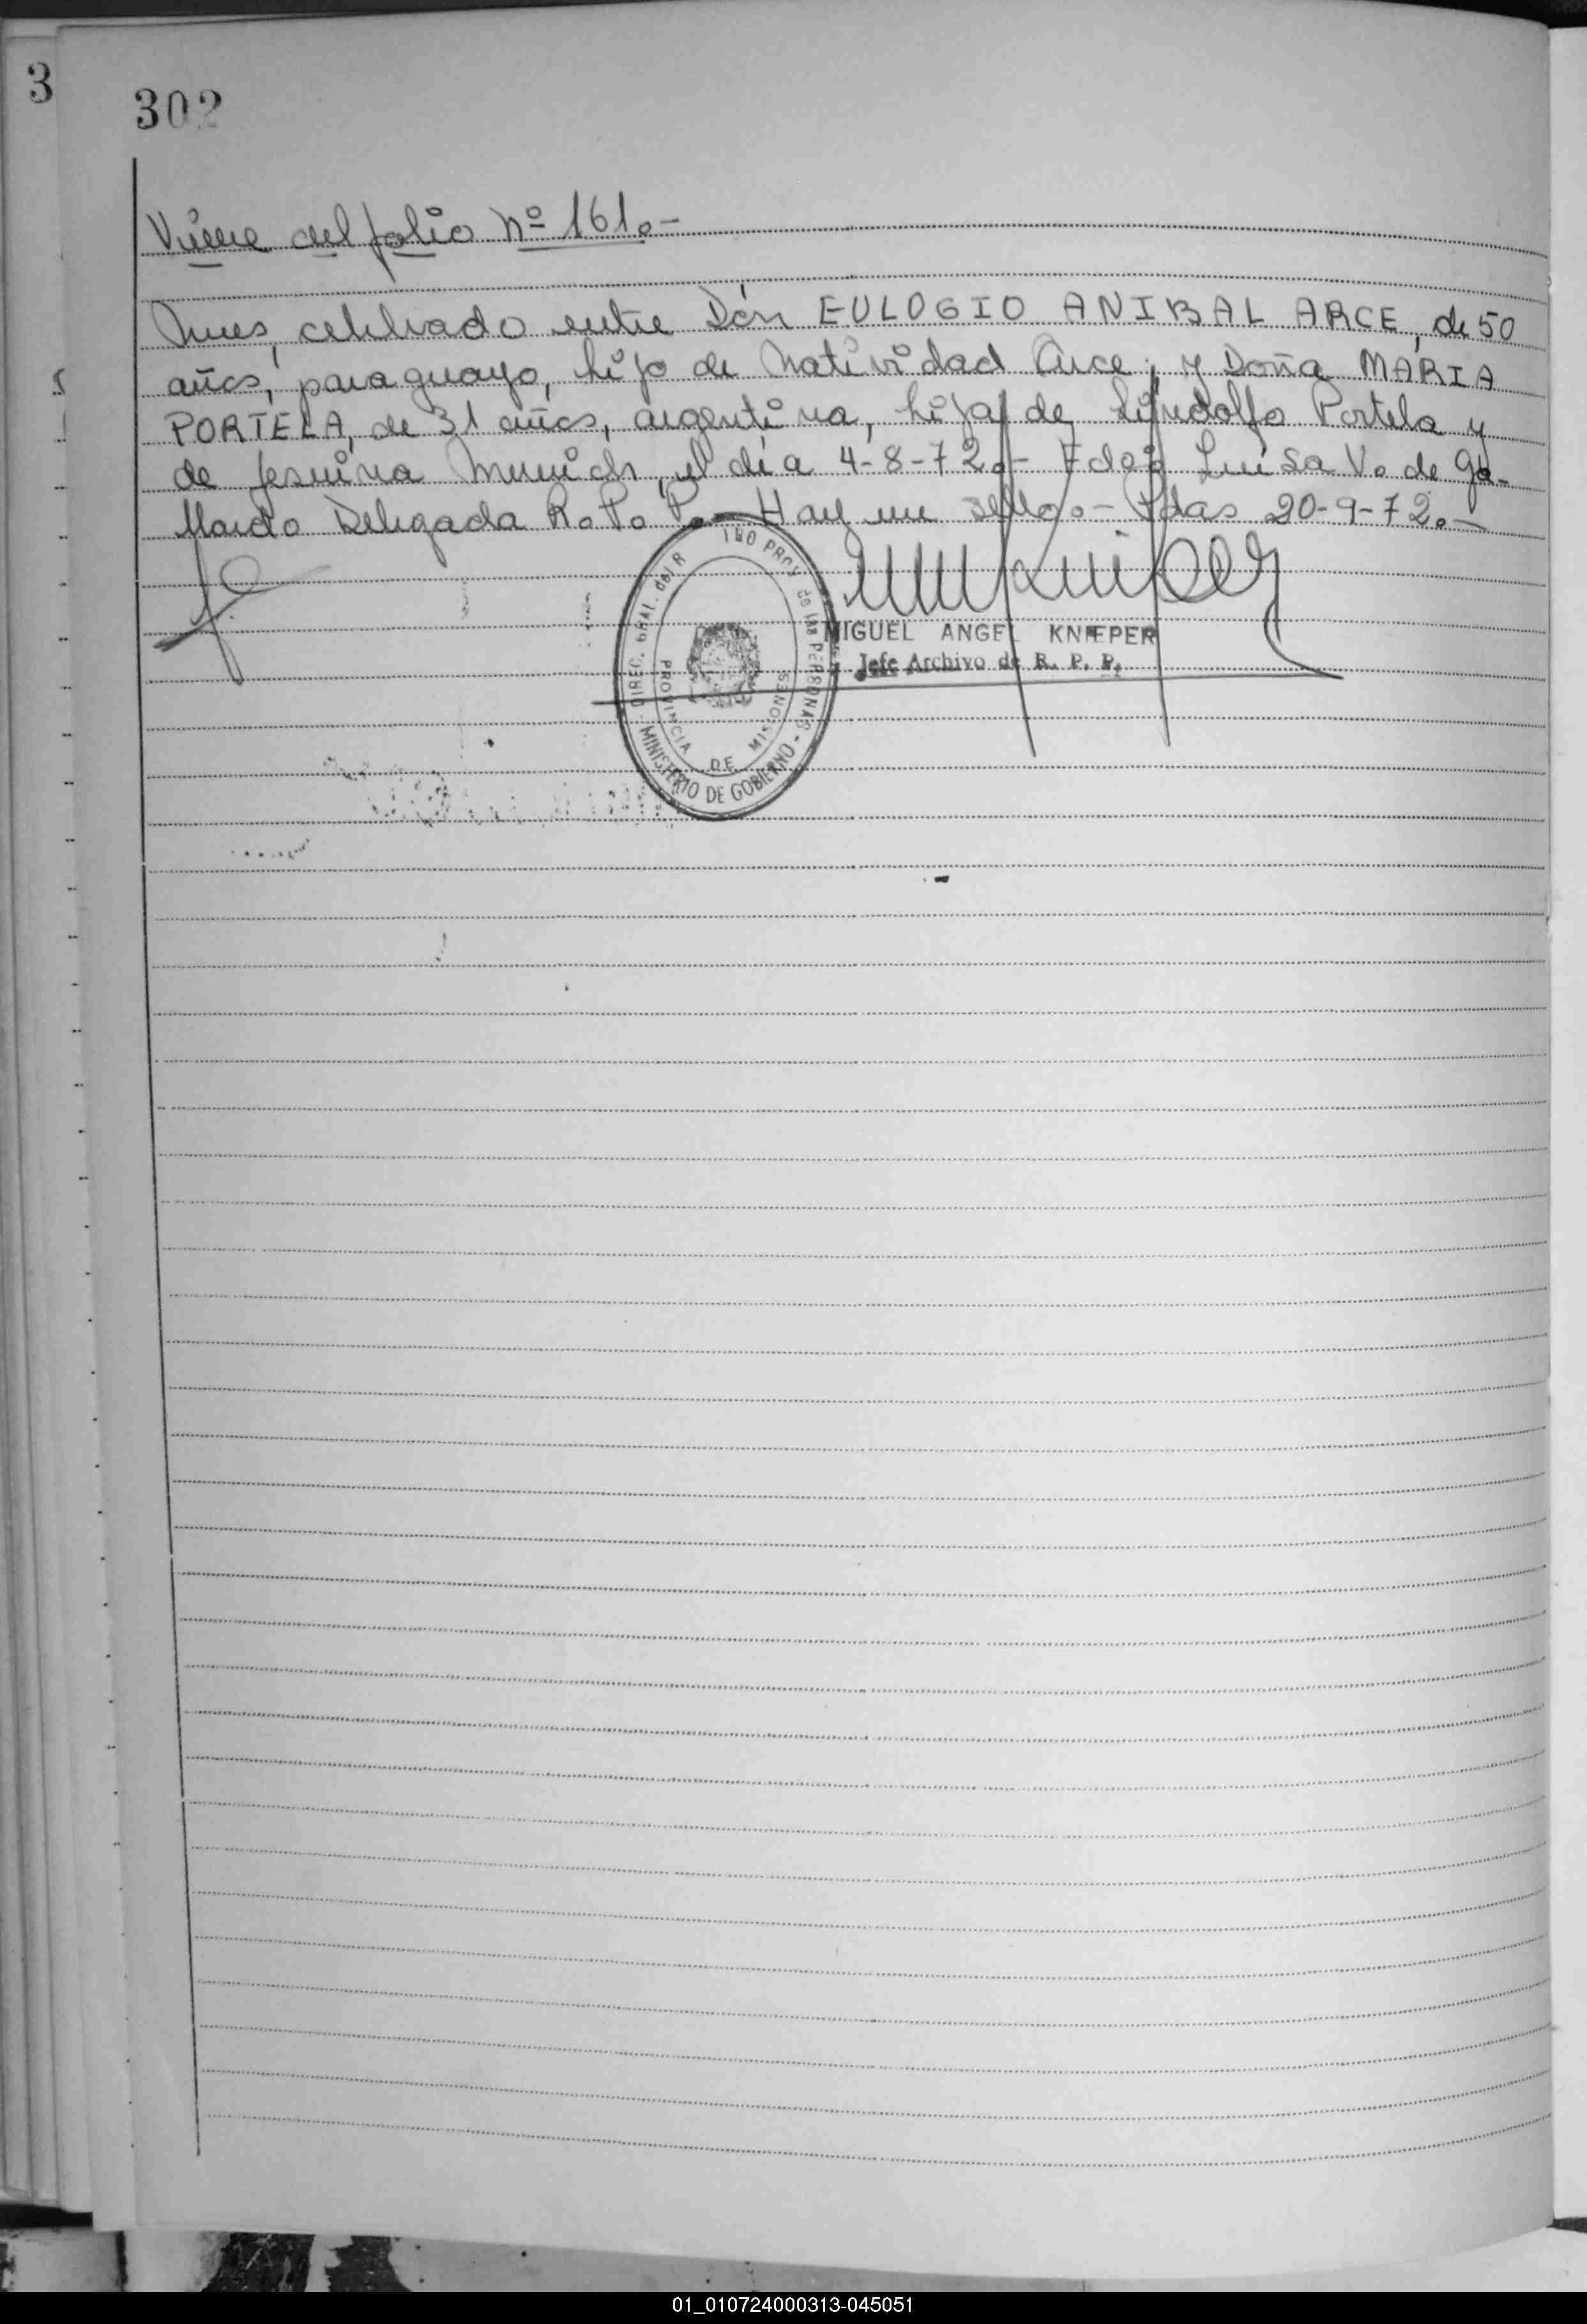 3
302
Viene del folio nº 161.-
nues, celebrado entre Dón EULOGIO ANIBAL ARCE, de 50
años, paraguayo, hijo de Natividad Arce; y Doña MARIA
PORTELA, de 31 años, argentina, hija de Lindolfo Portela y
de Jesuina Munich, el día 4-8-72.- Fdo: Luisa V. de Ga-
llardo Delegada R.P.P.- Hay un sello.- Pdas 20-9-72.-
DIREC. GRAL. del R PROV. de las PERSONAS - MINISTERIO DE GOBIERNO -
PROVINCIA DE MISIONES
MIGUEL ANGEL KNIEPER
Jefe Archivo de R. P. P.
01_010724000313-045051